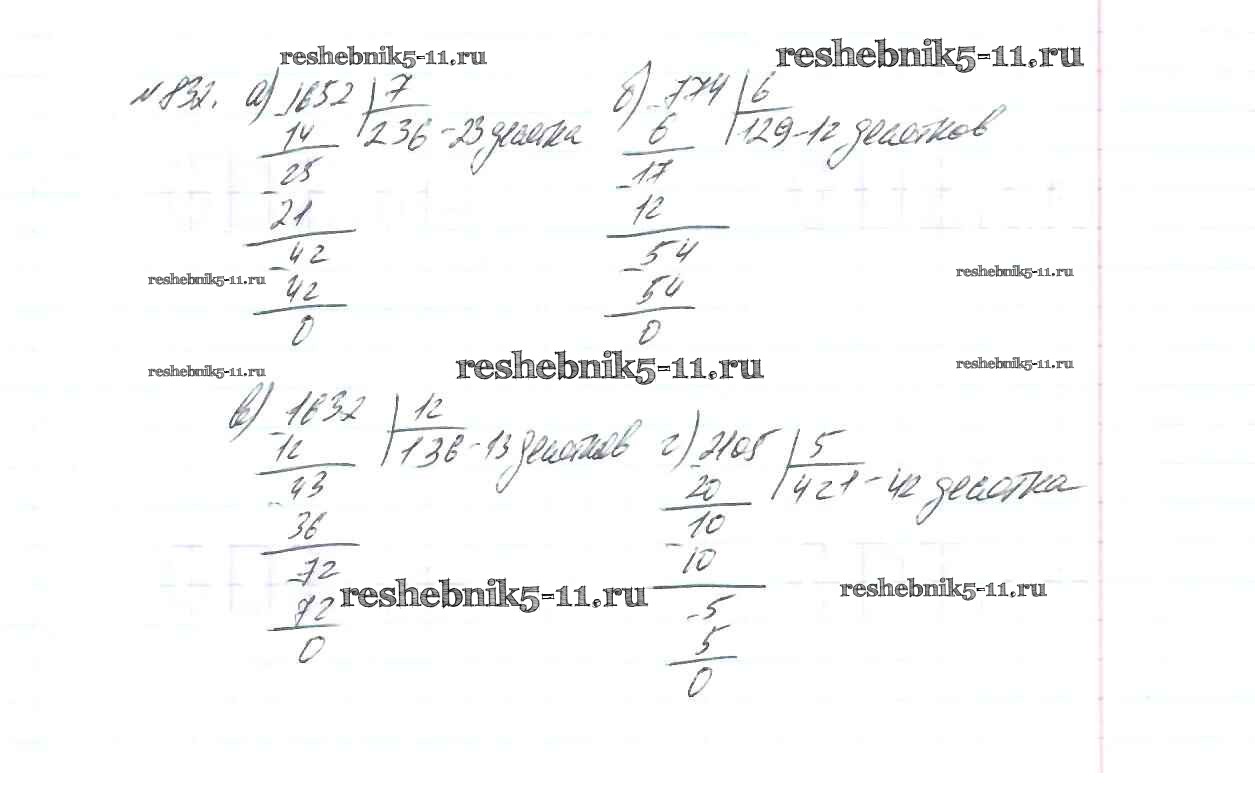 reshebnik5-11.ru reshebnik5-11.ru
№832. а) 1652 | 7
14 236 - 23 десятка
25
21
42
42
0
б) 774 | 6
6 129 - 12 десятков
17
12
54
54
0
reshebnik5-11.ru reshebnik5-11.ru
reshebnik5-11.ru reshebnik5-11.ru reshebnik5-11.ru
в) 1632 | 12
12 136 - 13 десятков
43
36
72
72
0
г) 2105 | 5
20 421 - 42 десятка
10
10
5
5
0
reshebnik5-11.ru reshebnik5-11.ru